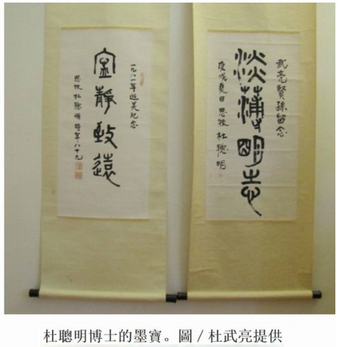 武亮賢孫留念
淡薄明志
庚戌夏日思牧杜聰明
一九八一年遊美紀念
寧靜致遠
思牧杜聰明時年八十九
杜聰明博士的墨寶。圖/杜武亮提供